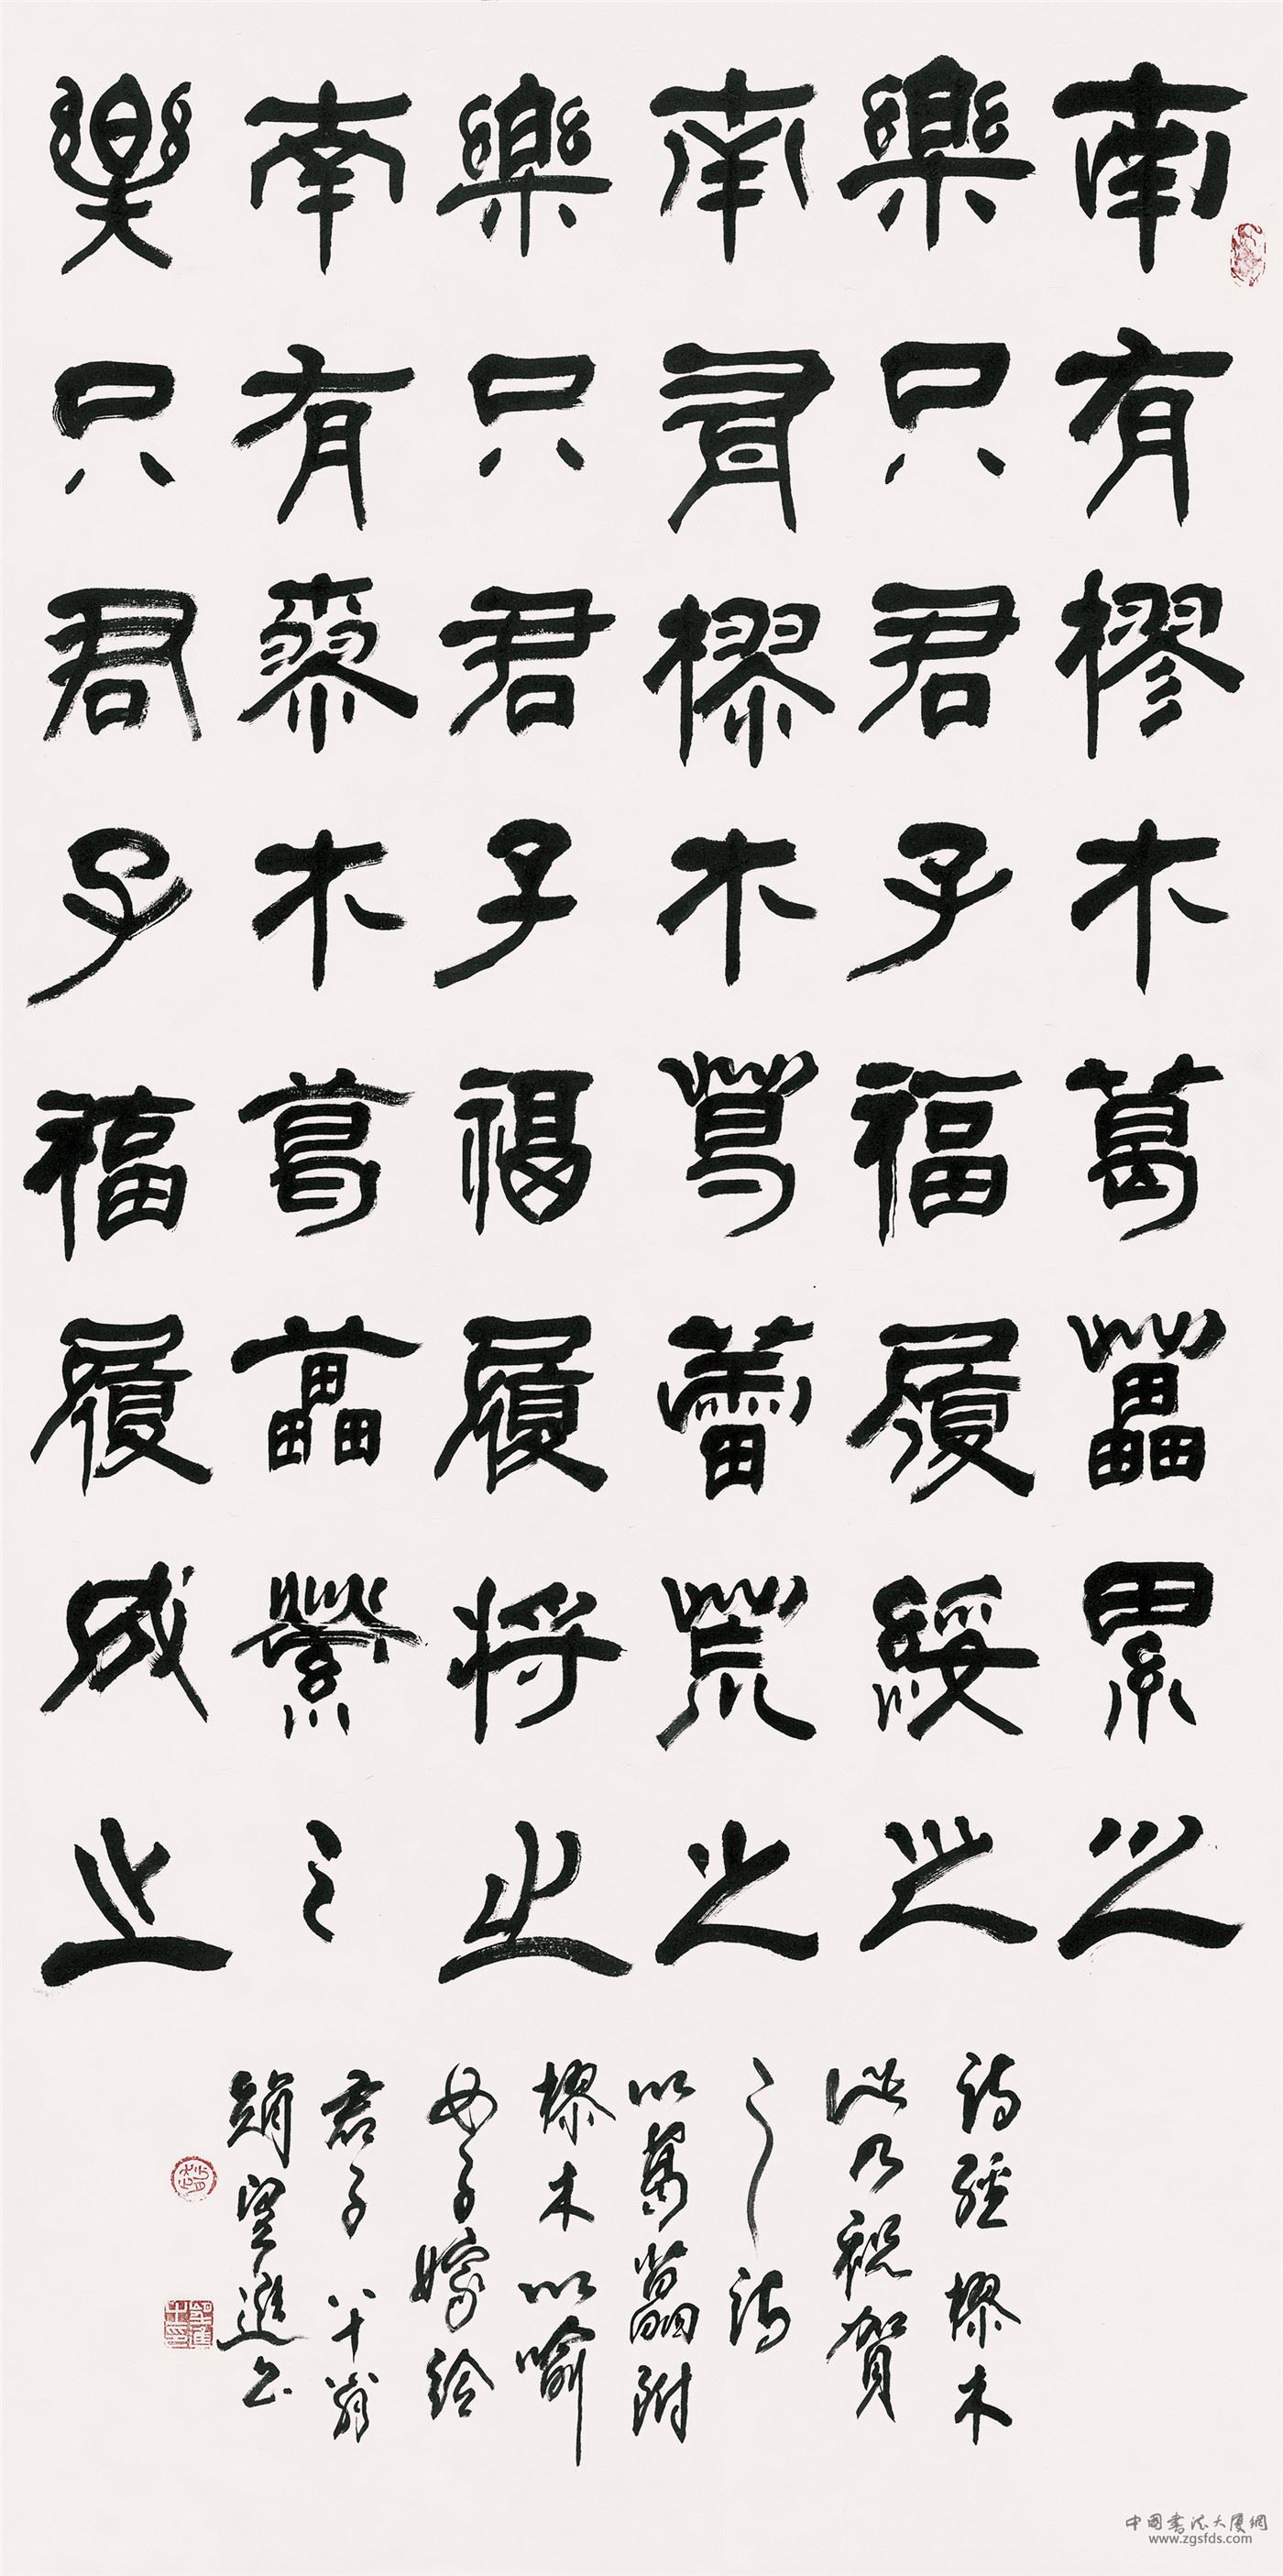 南有樛木葛藟累之
樂只君子福履綏之
南有樛木葛藟荒之
樂只君子福履將之
南有樛木葛藟縈之
樂只君子福履成之
詩經樛木
此乃祝賀
之詩
以葛藟附
樛木以喻
女子嫁給
君子 八十翁
趙望進書
中国书法大厦網
www.zgsfds.com